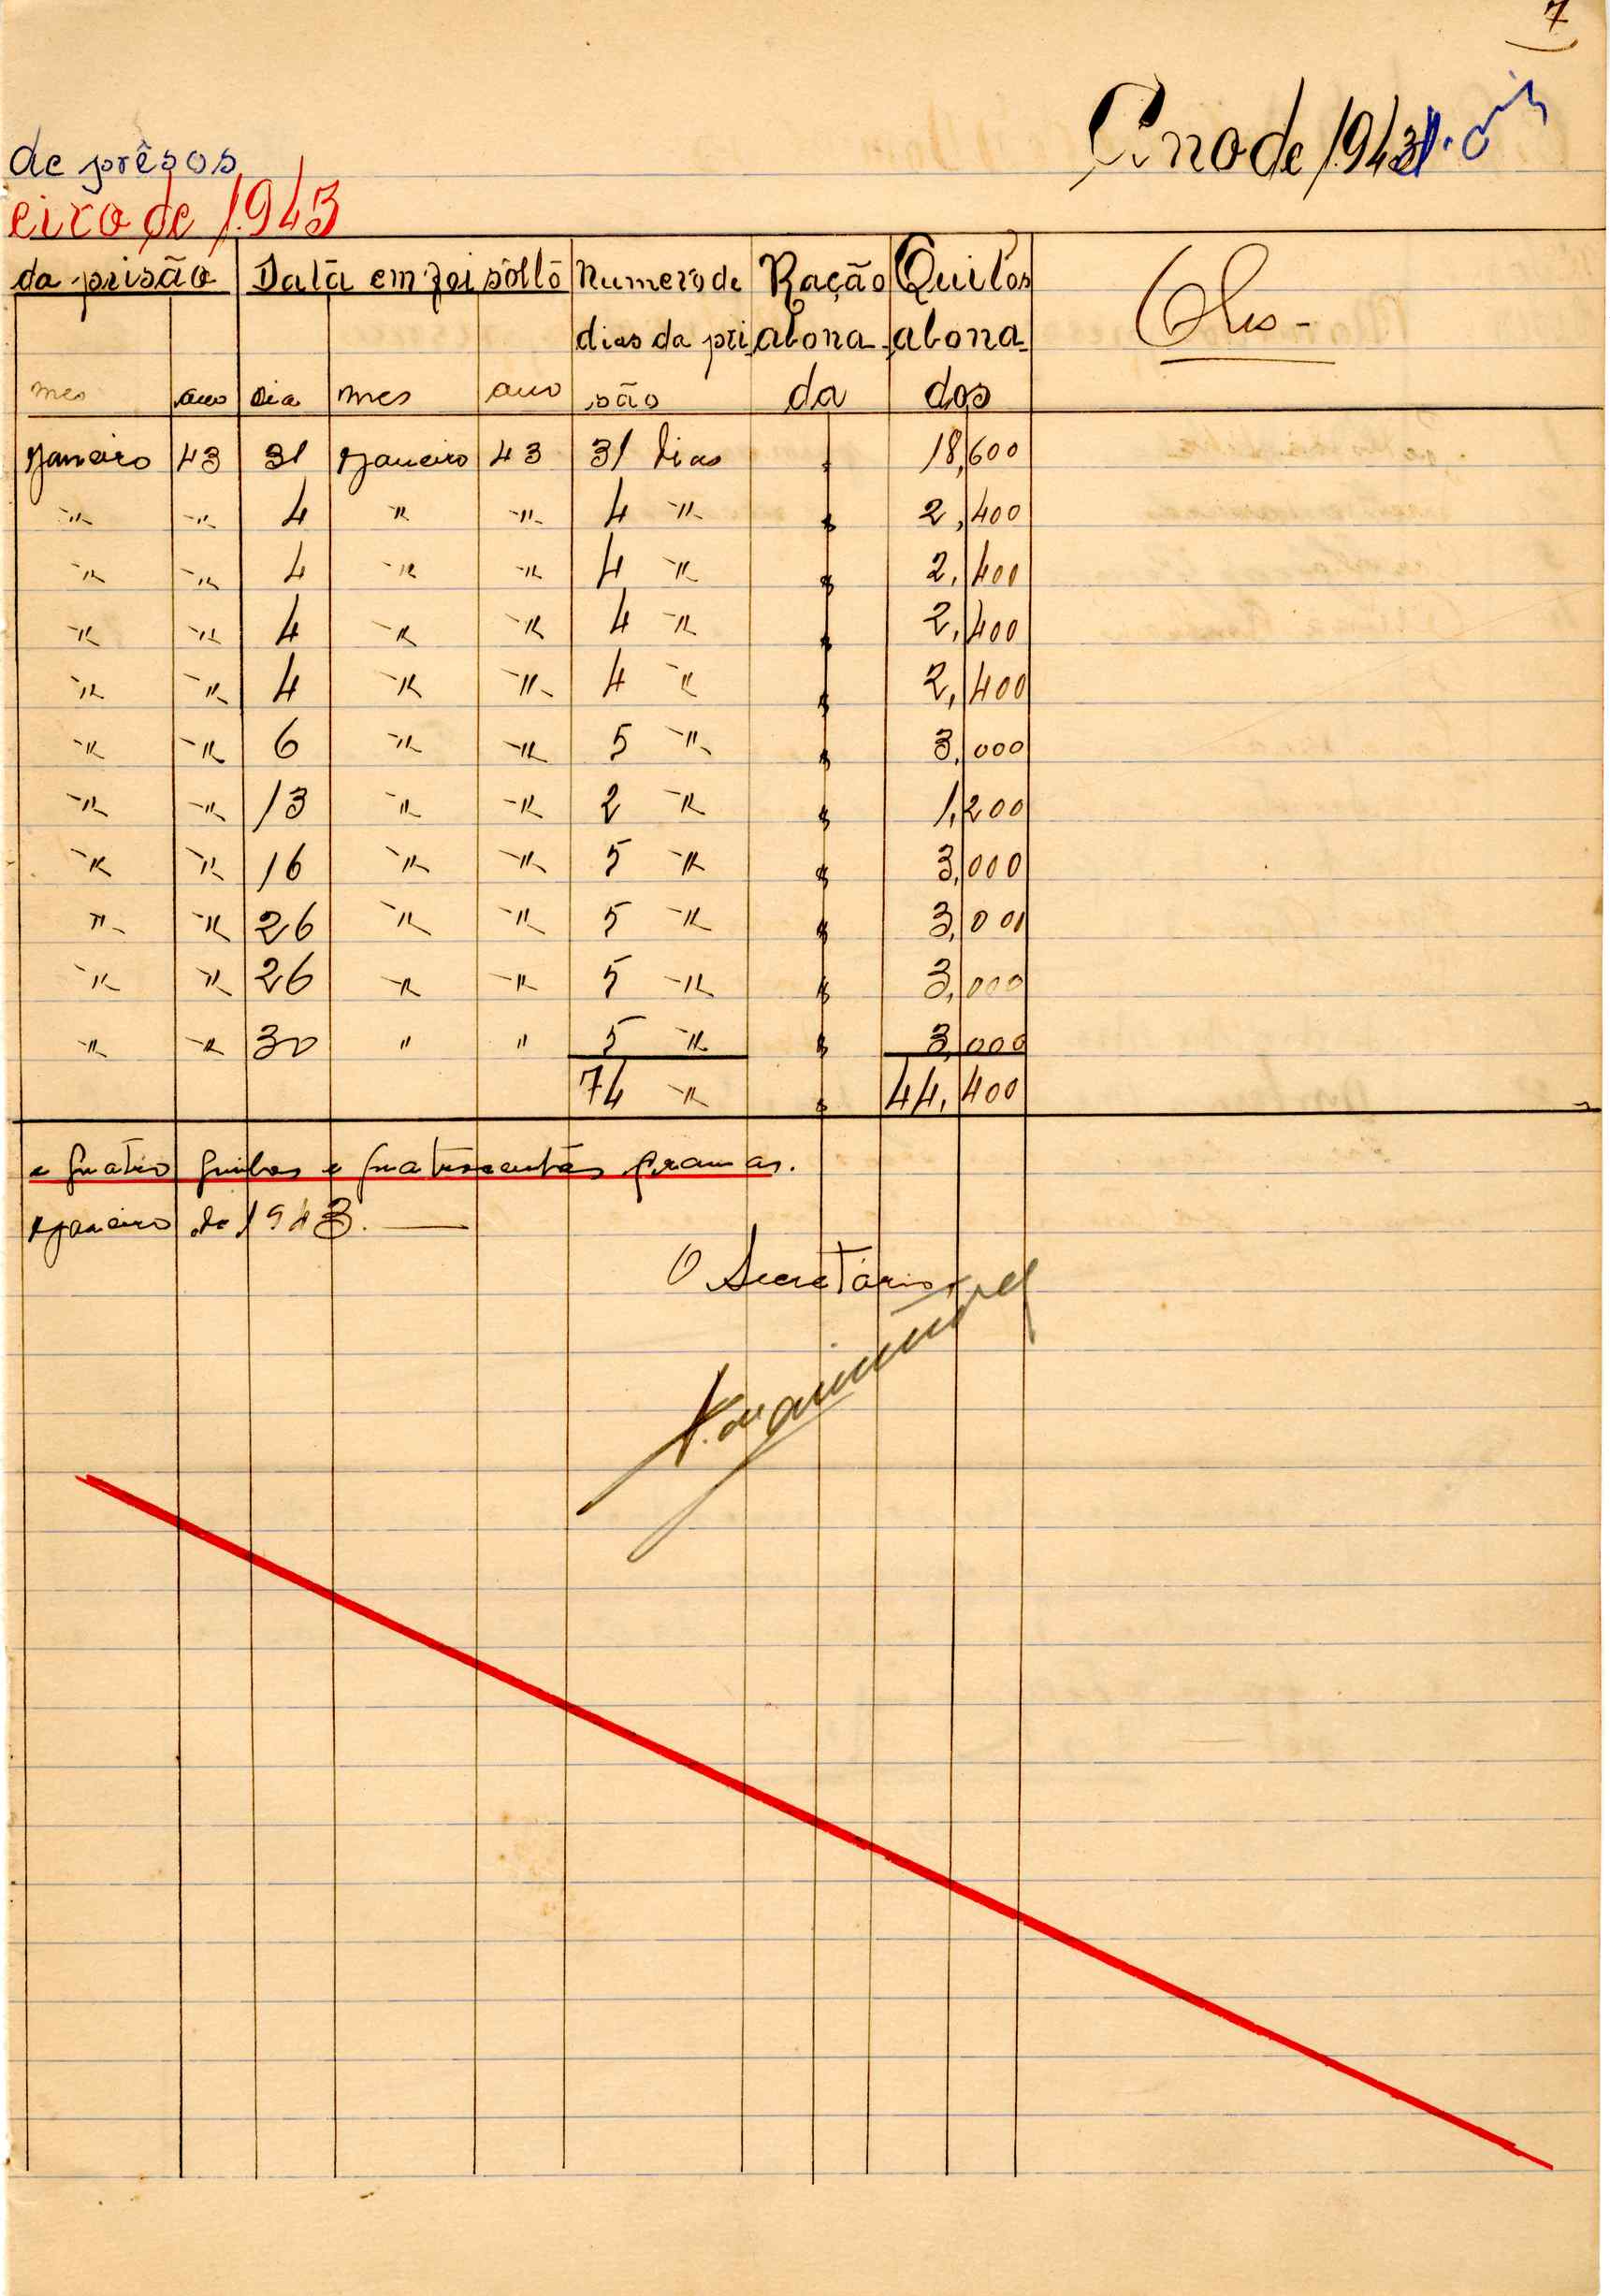 7
de prêsos Ano de 1943
eiro de 1943
da prisão Data em foi sôlto Numero de Ração Quilos Obs-
dias da pri abona- abona-
mes ano dia mes ano são da dos
Janeiro 43 31 Janeiro 43 31 dias 18,600
" " 4 " " 4 " $ 2,400
" " 4 " " 4 " $ 2,400
" " 4 " " 4 " $ 2,400
" " 4 " " 4 " $ 2,400
" " 6 " " 5 " $ 3,000
" " 13 " " 2 " $ 1,200
" " 16 " " 5 " $ 3,000
" " 26 " " 5 " $ 3,000
" " 26 " " 5 " $ 3,000
" " 30 " " 5 " $ 3,000
74 " $ 44,400
e quatro quilos e quatrocentas gramas.
Janeiro de 1943.
O Secretário,